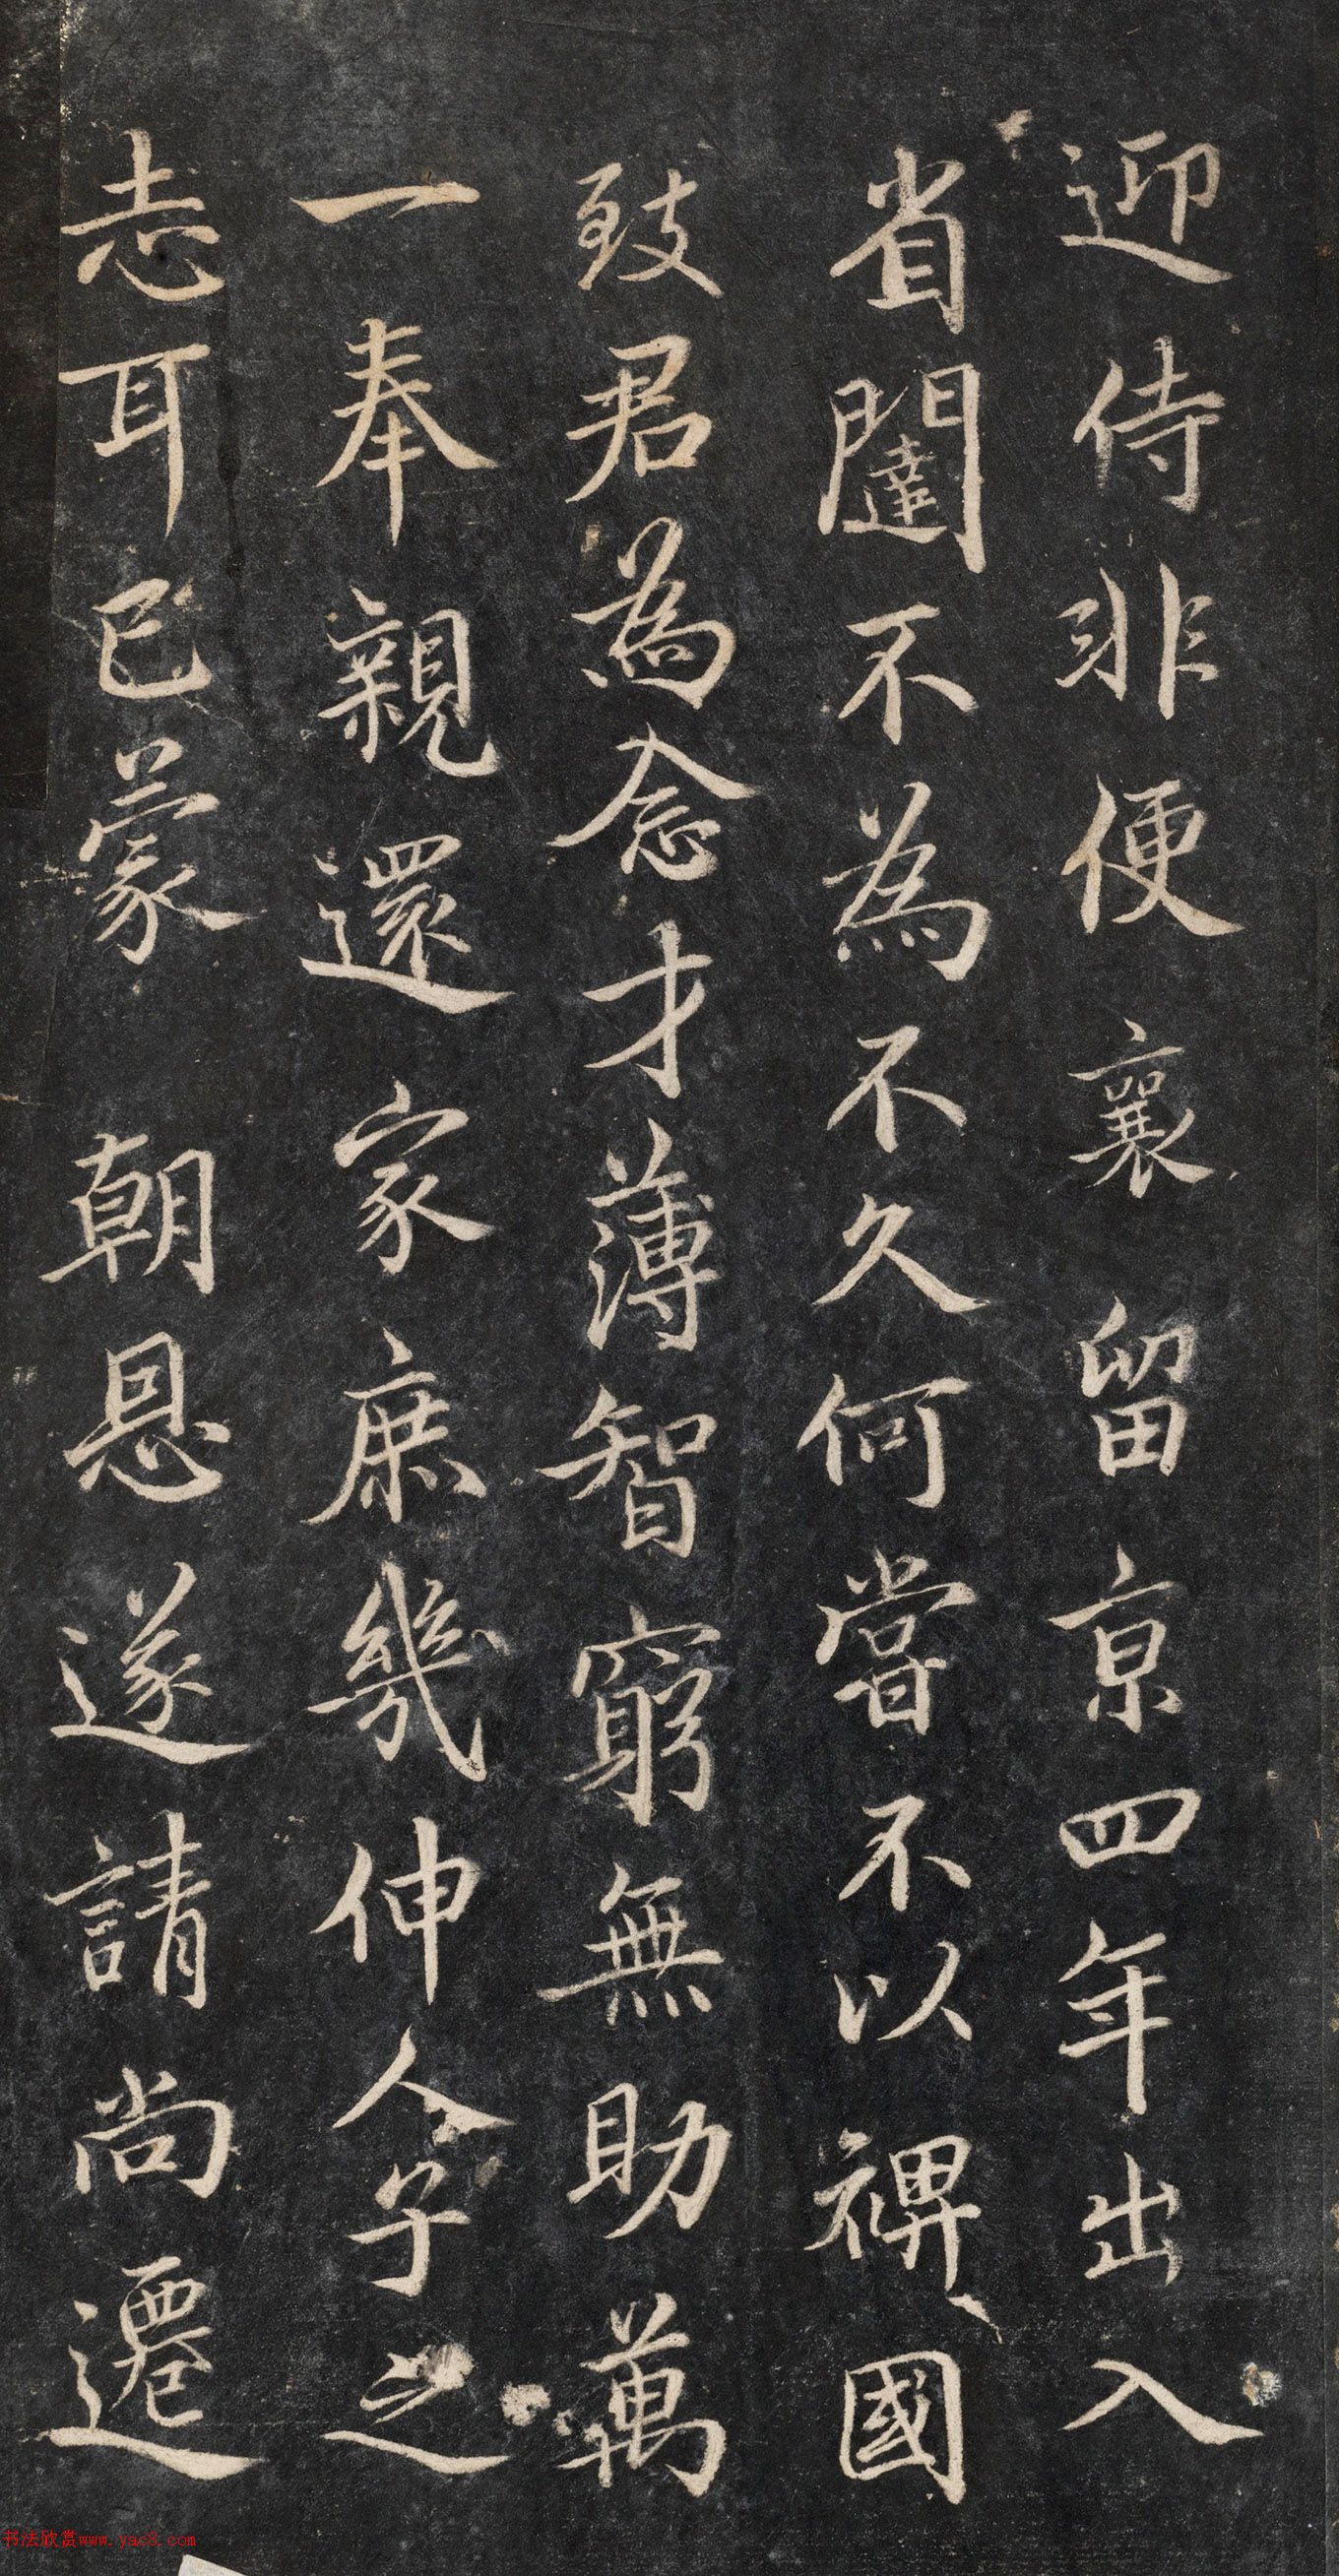 迎侍非便襄留京四年出入
省闥不為不久何嘗不以裨國
致君為念才薄智窮無助萬
一奉親還家庶幾伸人子之
志耳已蒙朝恩遂請尚遷
书法欣赏www.yac8.com